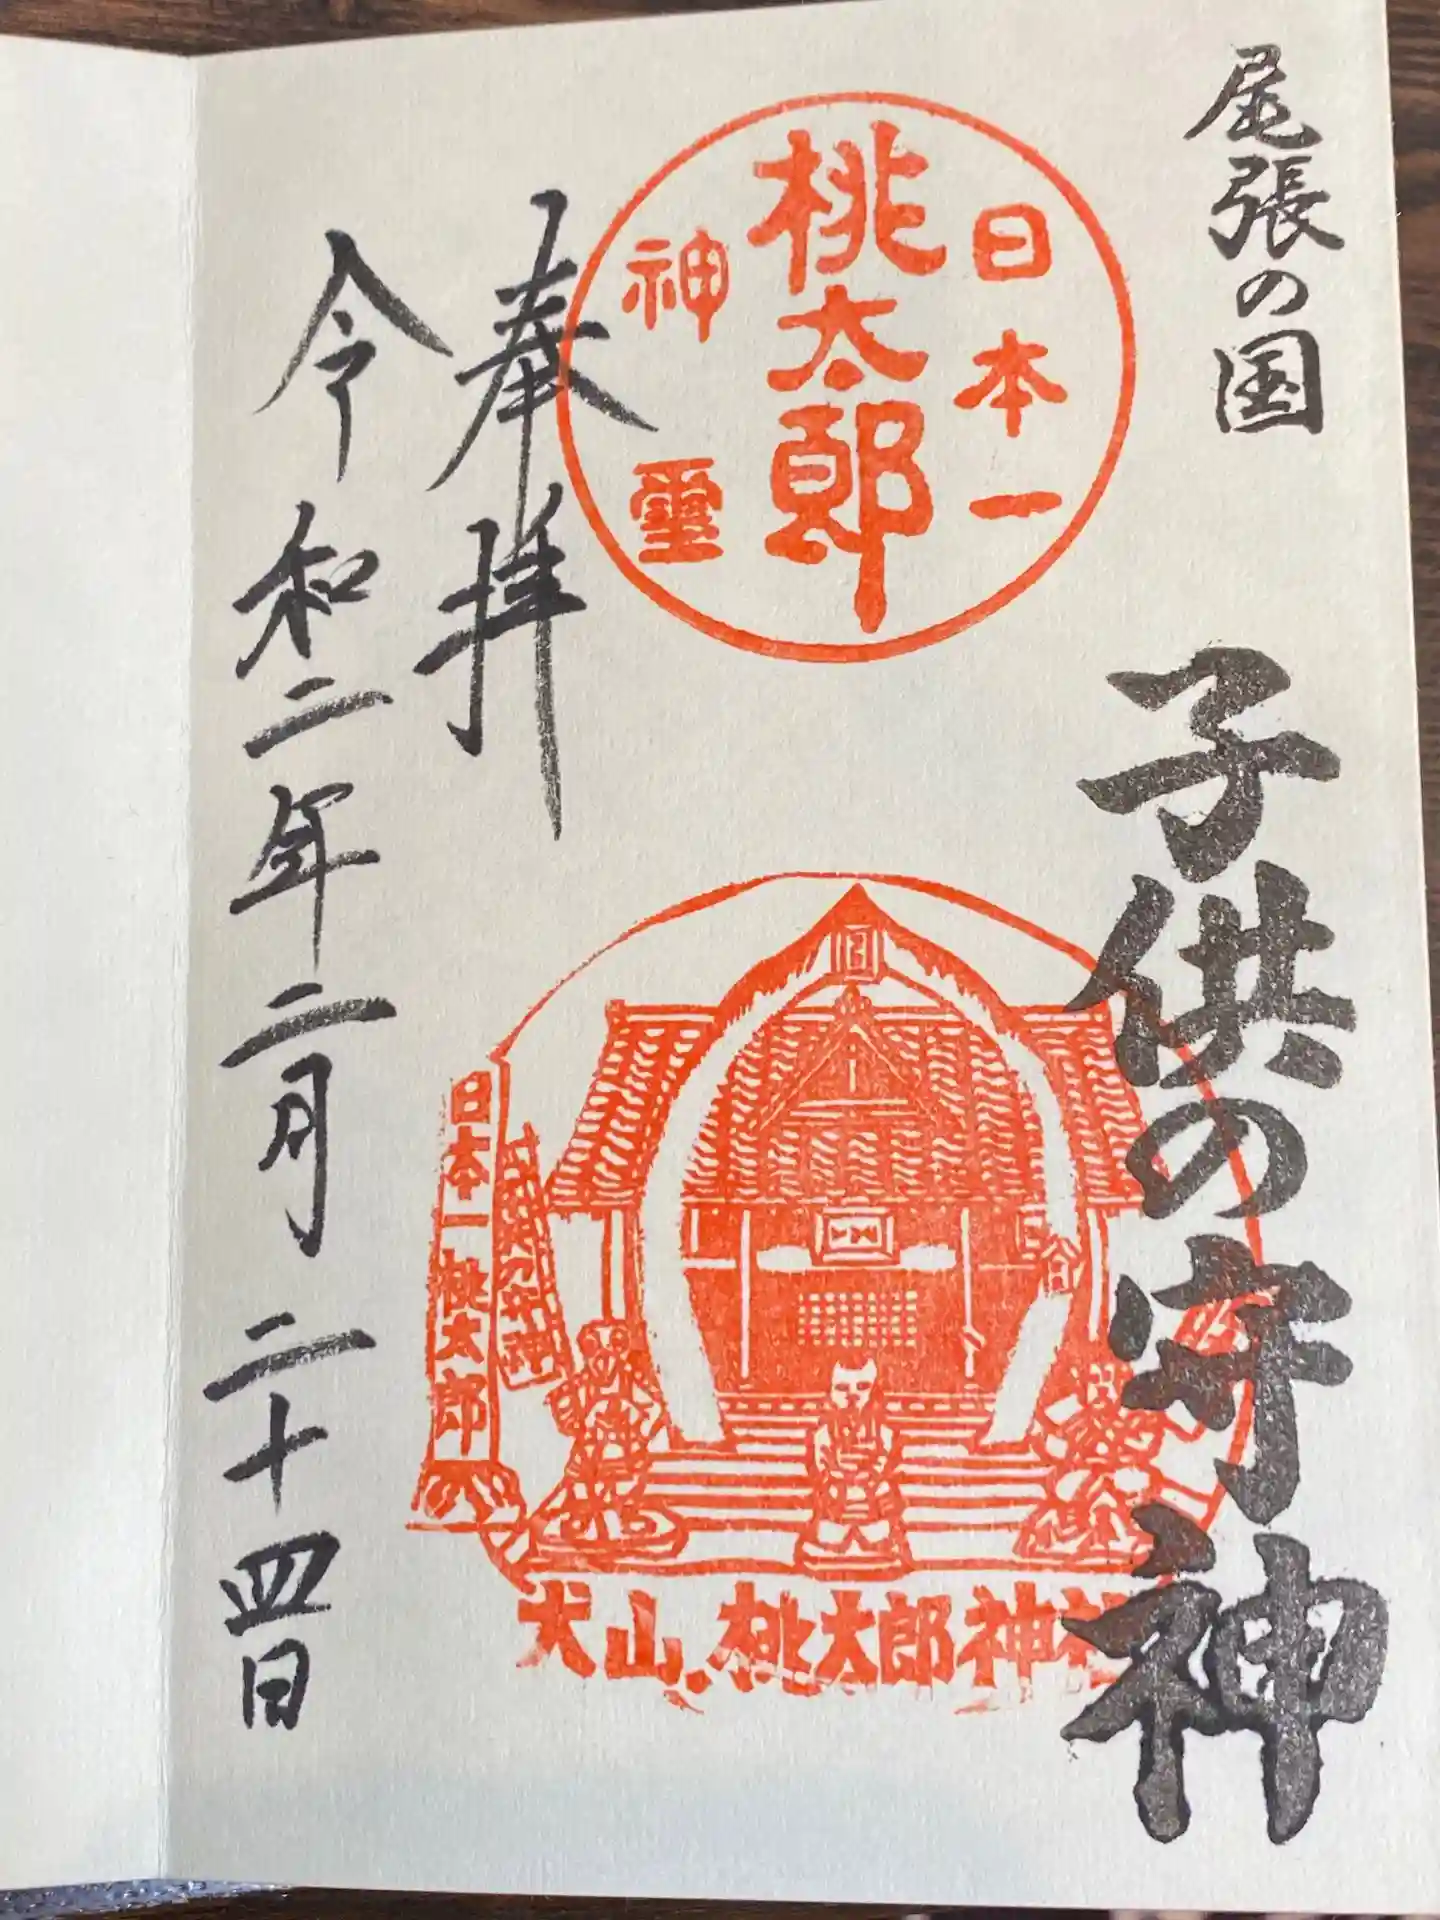 尾張の国
子供の守神
日本一
桃太郎
神霊
奉拝
令和二年二月二十四日
日本一桃太郎
犬山、桃太郎神社